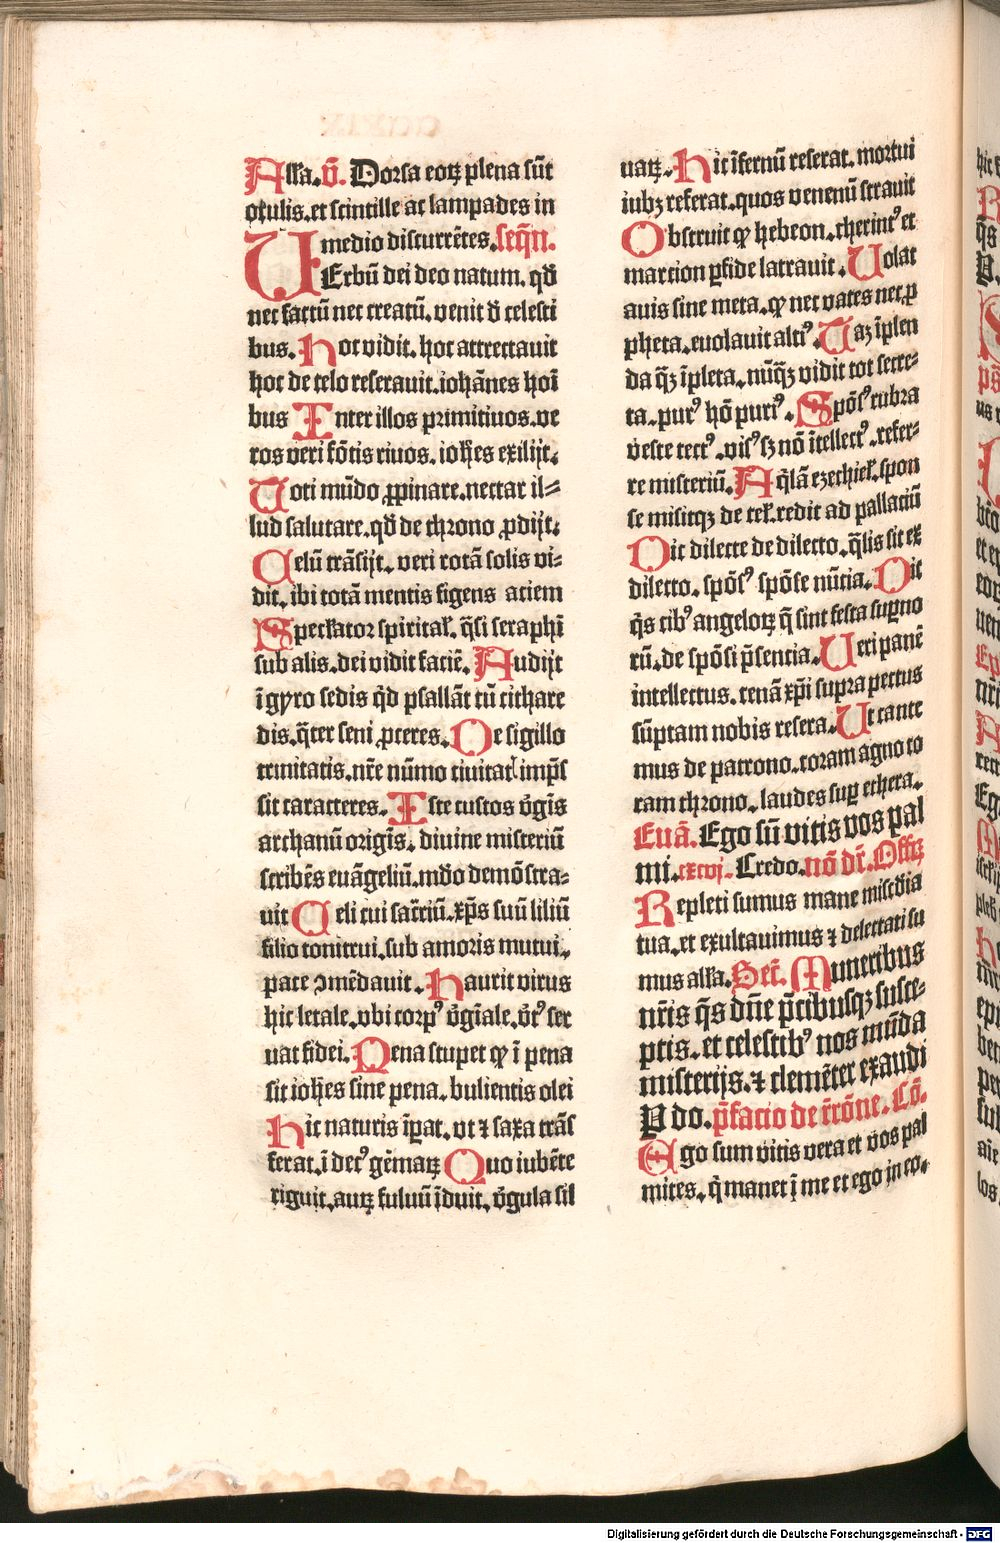 Alła. v̄. Dorsa eoꝝ plena sūt
oculis. et scintille ac lampades in
medio discurrētes. seqn̄.
Uerbū dei deo natum. qđ
nec factū nec creatū. venit đ celesti
bus. Hoc vidit. hoc attrectauit
hoc de celo reserauit. iohānes hoī
bus Inter illos primitiuos. ve
ros veri fōtis riuos. ioħes exilijt.
Toti mūdo ꝓpinare. nectar il⸗
lud salutare. qđ de throno ꝓdijt.
Celū trāsijt. veri rotā solis vi⸗
dit. ibi totā mentis figens aciem
Speckator spiritał. q̄si seraphī
sub alis. dei vidit faciē. Audijt
ī gyro sedis qđ psallāt cū cithare
dis. q̄ter seni ꝓceres. De sigillo
trinitatis. nr̄e nūmo ciuitatꝭ imp̄s
sit caracteres. Iste custos v̄gīs
archanū origīs. diuine misteriū
scribēs euāgeliū. mđo demōstra⸗
uit Celi cui sacr̄iū. xp̄s suū liliū
filio tonitrui. sub amoris mutui.
pace ꝯmēdauit. Haurit virus
hic letale. vbi corpꝰ v̄gīale. v̄tꝰ ser
uat fidei. Pena stupet ꝙ ī pena
sit ioħes sine pena. bulientis olei
Hic naturis īpat. vt ⁊ saxa trās
ferat. ī decꝰ gēmaꝝ Quo iubēte
riguit. auꝝ fuluū īduit. v̄gula sil
uaꝝ. Hic īfernū reserat. mortui
iubꝫ referat. quos venenū strauit
Obstruit ꝙ hebeon. cherintꝰ et
marcion ꝑfide latrauit. Uolat
auis sine meta. ꝙ nec vates nec ꝓ
pheta. euolauit altiꝰ. Taꝫ īplen
da q̄ꝫ īpleta. nūqꝫ vidit tot secre⸗
ta. purꝰ hō puriꝰ. Spōsꝰ rubra
veste tectꝰ. visꝰ sꝫ nō ītellectꝰ. refer⸗
re misteriū. Aq̄lā ezechieł. spon
se misitqꝫ de ceł. redit ad pallaciū
Dic dilecte de dilecto. q̄lis sit ex
dilecto. spōsꝰ spōse nūcia. Dic
q̄s cibꝰ angeloꝝ q̄ sint festa suꝑno
rū. de spōsi p̄sentia. Ueri panē
intellectus. cenā xp̄i supra pectus
sūptam nobis resera. Ut cante
mus de patrono. coram agno co
ram throno. laudes suꝑ ethera.
Euā. Ego sū vitis vos pal
mi. cxcvj. Credo. nō dr̄. Offꝝ
Repleti sumus mane miscđia
tua. et exultauimus ⁊ delectati su
mus alła. Secr̄. Muneribus
nr̄is q̄s dn̄e p̄cibusqꝫ susce⸗
ptis. et celestibꝰ nos mūda
misterijs. ⁊ clemēter exaudi
P do. p̄facio de r̄rōne. Cō.
Ego sum vitis vera et vos pal
mites. q̄ manet ī me et ego in eo.
Digitalisierung gefördert durch die Deutsche Forschungsgemeinschaft - DFG